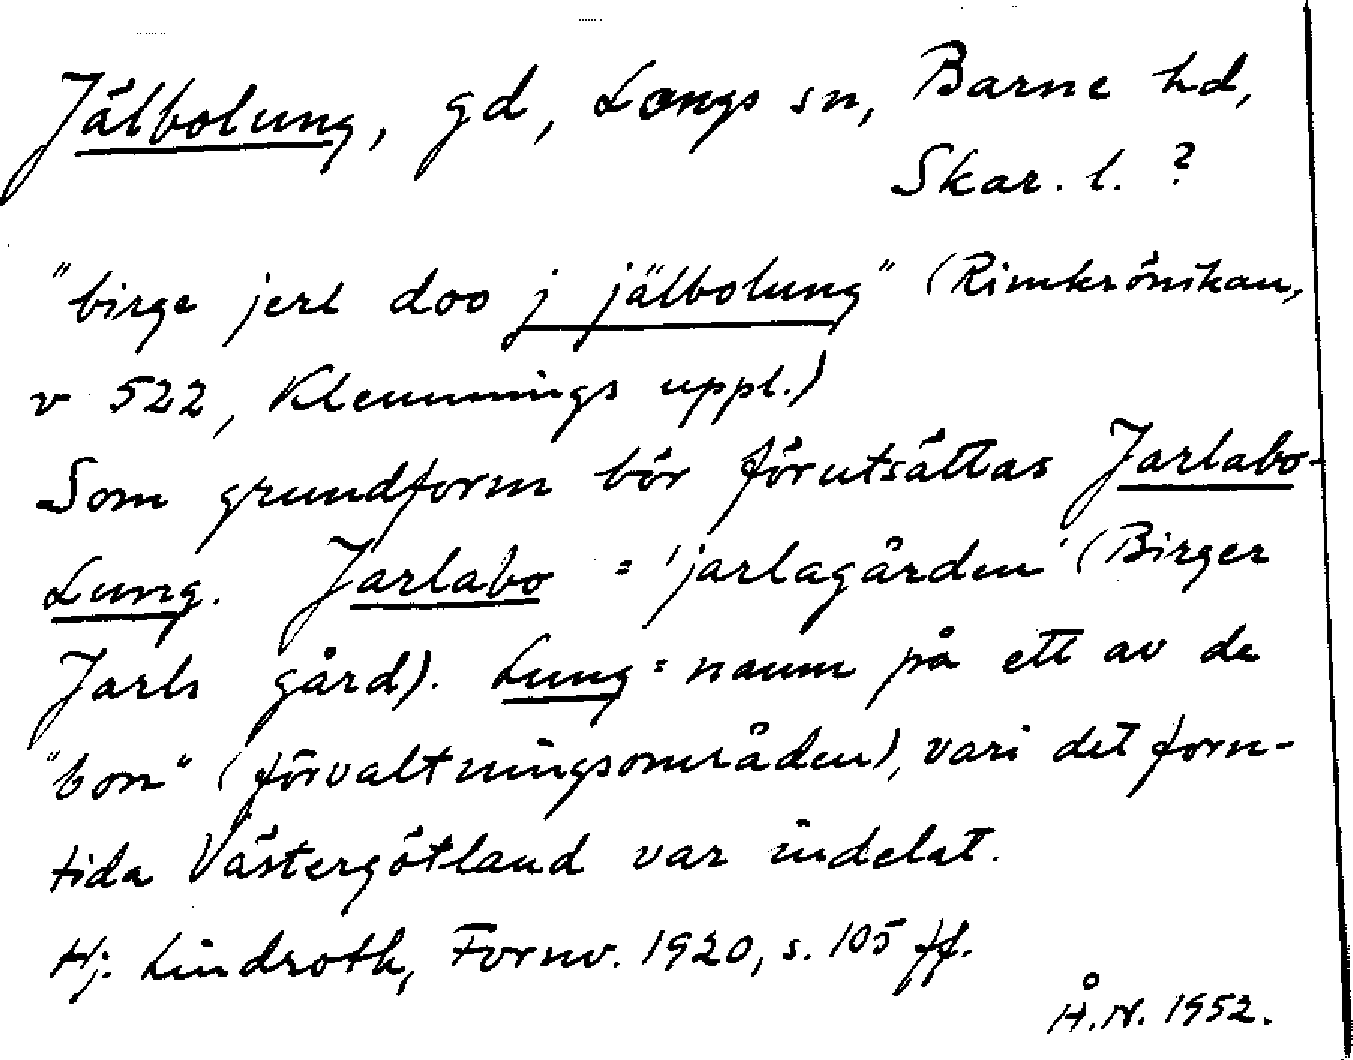 Jälbolung, gd, Longs sn, Barne hd,
Skar. l. ?
"birge jerl doo j jälbolung" (Rimkrönikan,
v 522, Klemmings uppl.)
Som grundform bör förutsättas Jarlabo-
Lung. Jarlabo = 'jarlagården' (Birger
Jarls gård). Lung = namn på ett av de
"bon" (förvaltningsområden), vari det forn-
tida Västergötland var indelat.
Hj. Lindroth, Fornv. 1920, s. 105 ff.
Å.N. 1952.